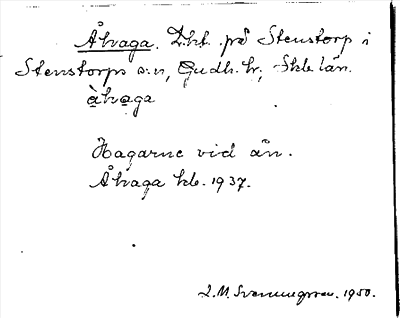 Åhaga. Dht. på Stenstorp i
Stenstorps s:n, Gudh. hr, Skb. län.
àhaga
Hagarne vid ån.
Åhaga hb. 1937.
L.M. Svenungsson. 1950.